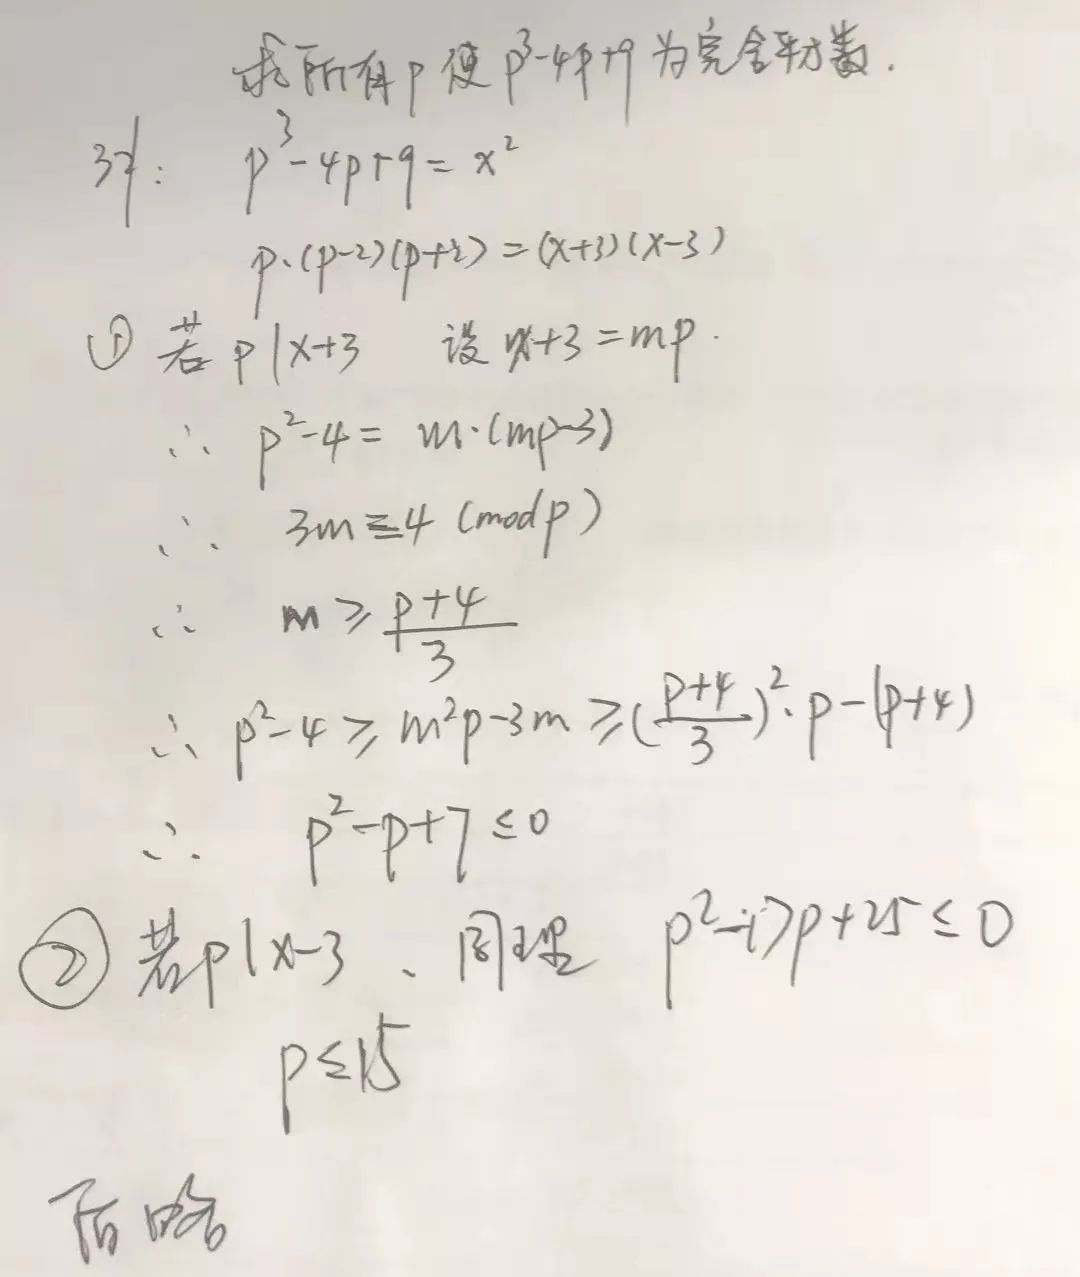 求所有p使p³-4p+9为完全平方数.
解: p³-4p+9=x²
p·(p-2)(p+2)=(x+3)(x-3)
① 若p|x+3 设x+3=mp.
∴ p²-4= m·(mp-3)
∴ 3m≡4 (mod p)
∴ m≥(p+4)/3
∴ p²-4≥m²p-3m≥((p+4)/3)²·p-(p+4)
∴ p²-p+7≤0
② 若p|x-3、同理 p²-17p+25≤0
p≤15
后略